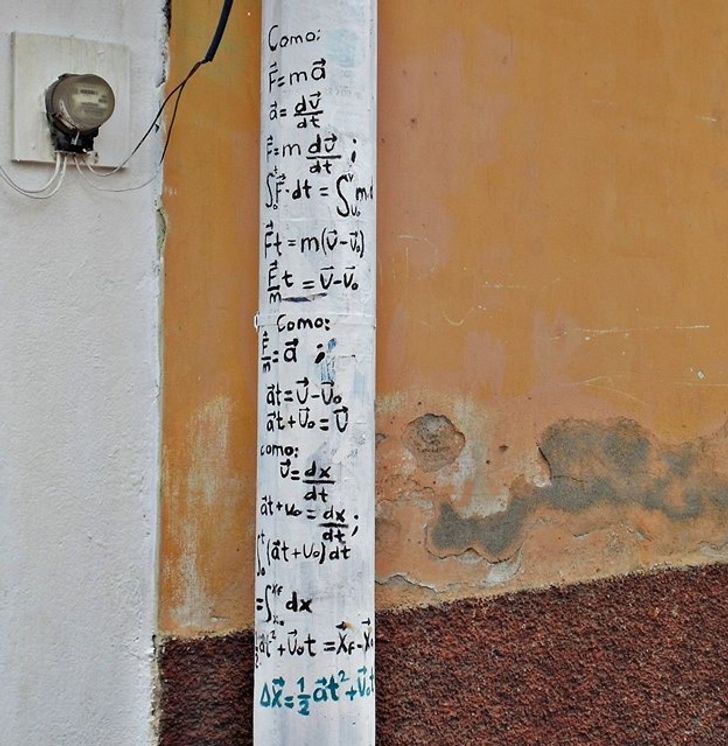 Como:
F⃗=ma⃗
a⃗=dv⃗/dt
F⃗=m dv⃗/dt ;
∫₀ᵗF⃗·dt = ∫ᵥ₀ᵛ m·
F⃗t=m(v⃗-v⃗₀)
F⃗/m t = v⃗-v⃗₀
Como:
F⃗/m=a⃗ ;
a⃗t=v⃗-v⃗₀
a⃗t+v⃗₀=v⃗
como:
v⃗=dx/dt
a⃗t+v₀=dx/dt;
∫₀ᵗ(a⃗t+v₀)dt
=∫ₓ₀ˣᶠ dx
½a⃗t²+v⃗₀t=x⃗f-x⃗₀
Δx⃗=½a⃗t²+v⃗₀t